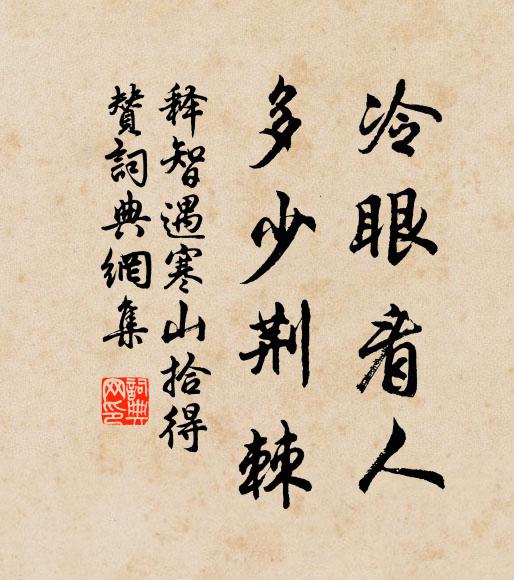 冷眼看人
多少荆棘
释智遇寒山拾得
赞詞典網集
詞典網印